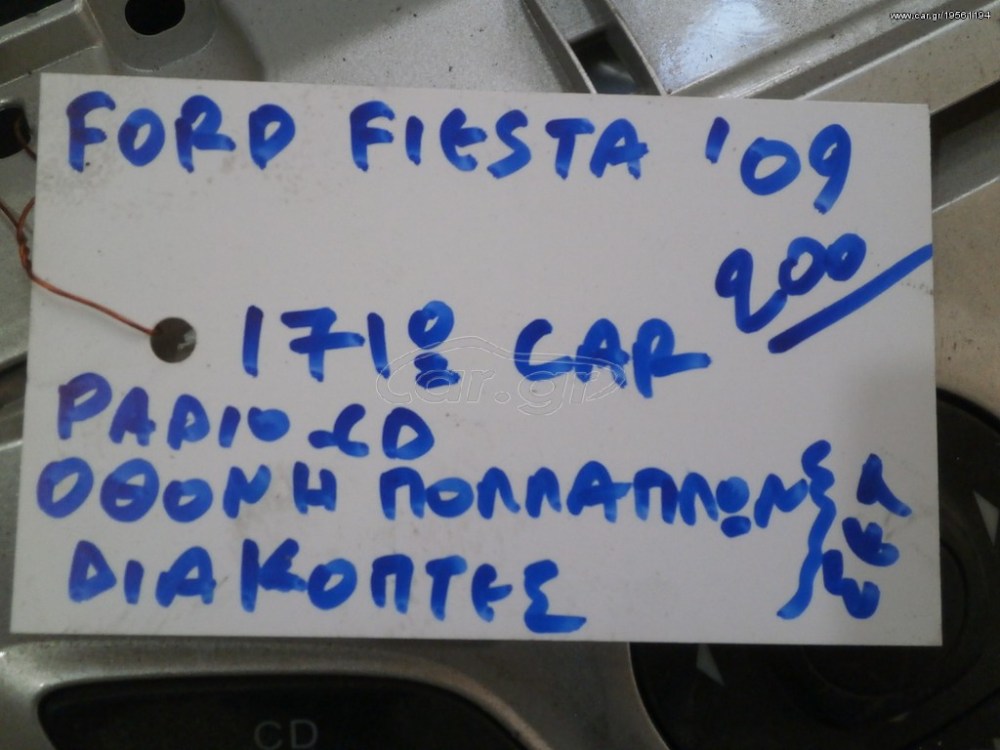 www.car.gr/19561194
FORD FIESTA '09
200
1718 CAR
car.gr
PADIO-CD
ΟΘΟΝΗ ΠΟΛΛΑΠΛΩΝ
ΔΙΑΚΟΠΤΕΣ
ΣΕΤ
CD